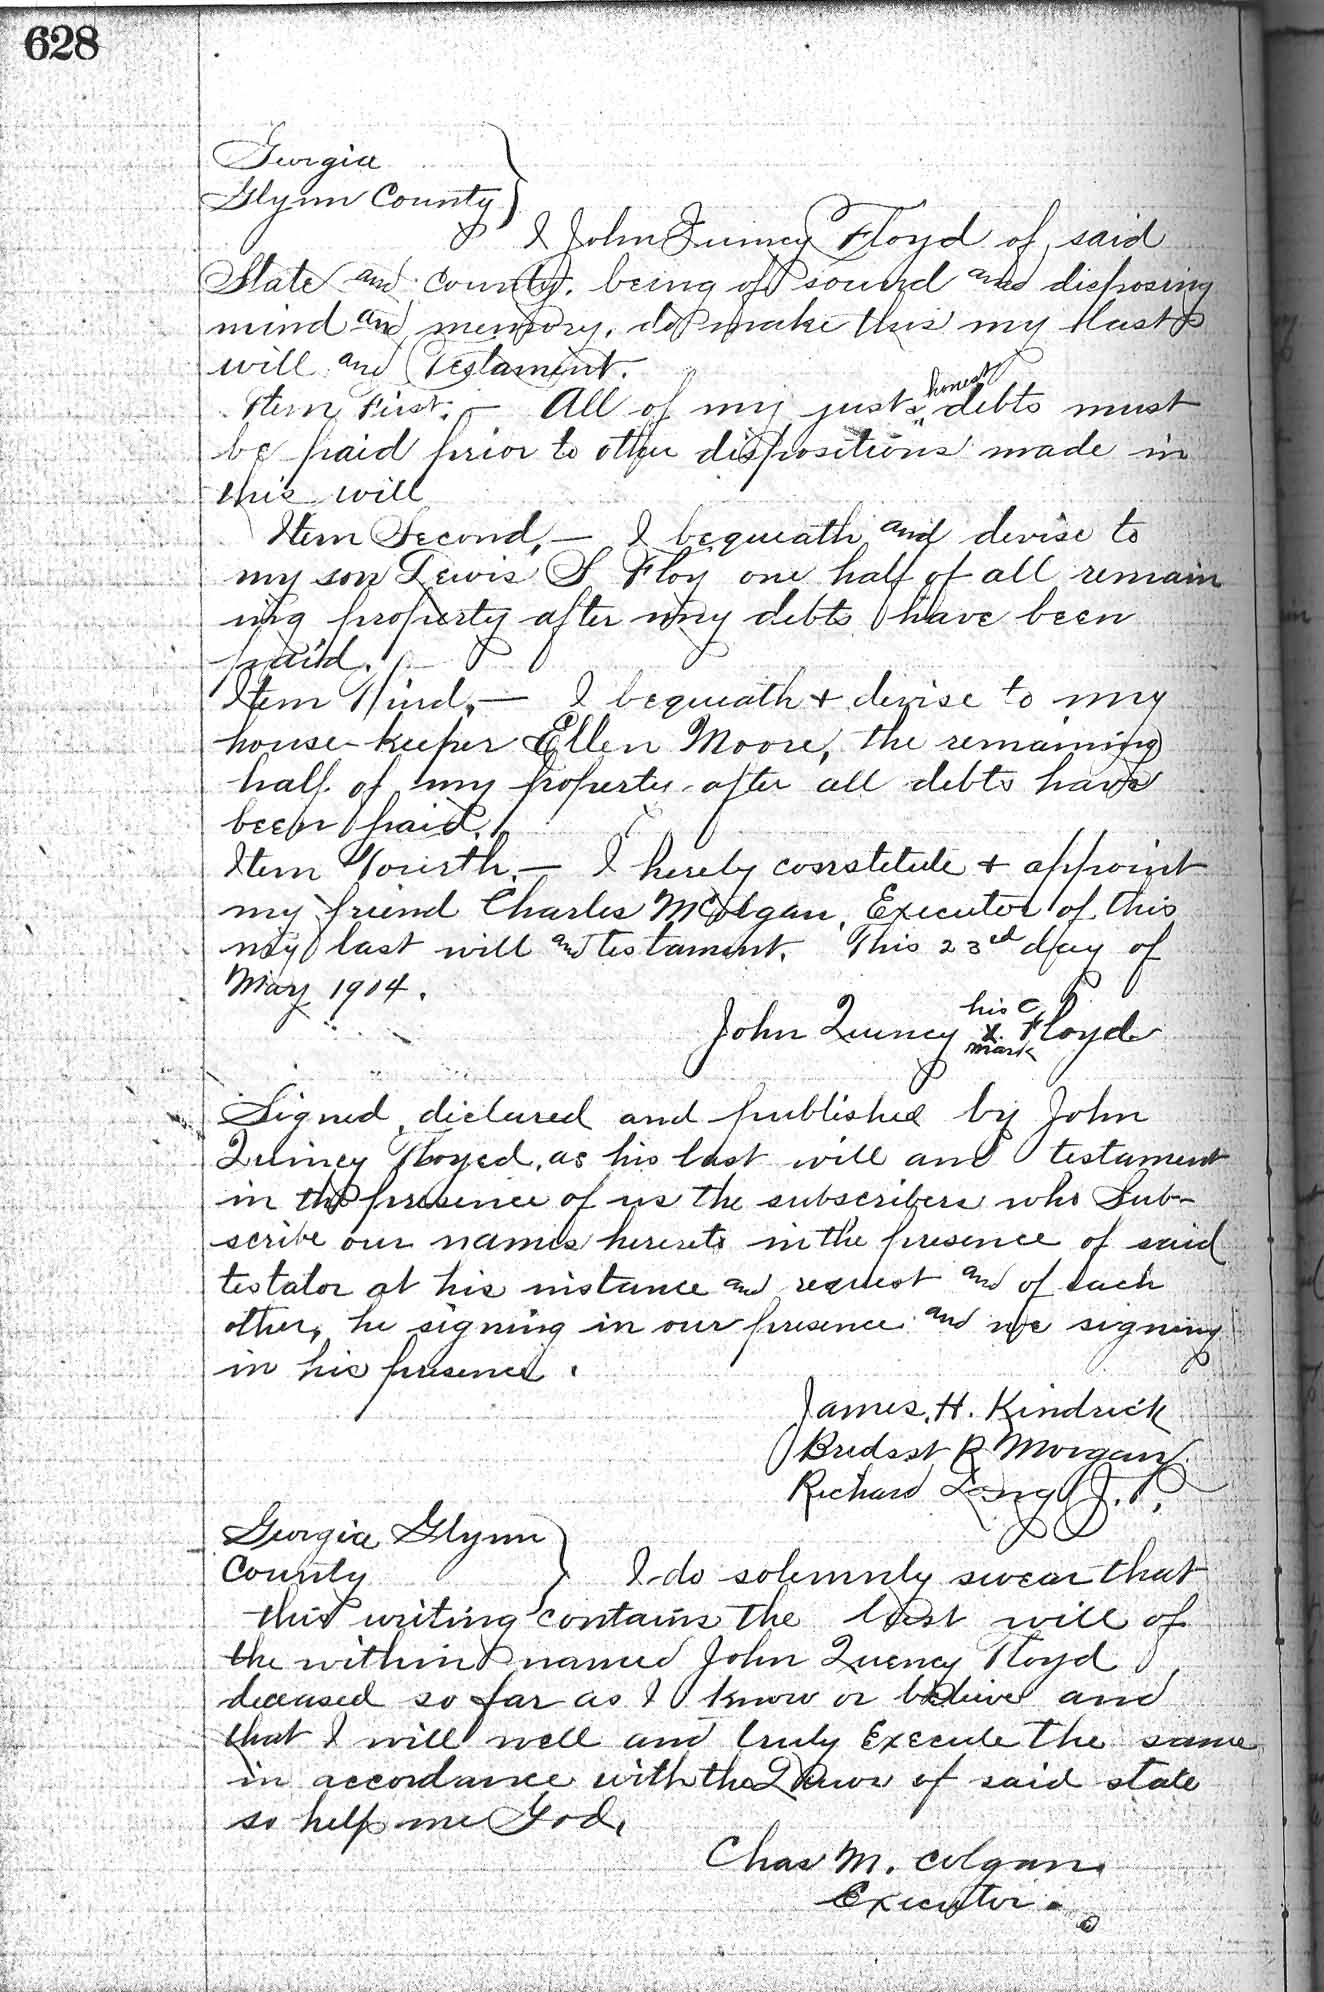 628
Georgia
Glynn County
I John Quincy Floyd of said
State and county, being of sound and disposing
mind and memory, do make this my last
will and Testament.
Item First:— All of my just & honest debts must
be paid prior to other dispositions made in
this will
Item Second,— I bequeath and devise to
my son Lewis S Floy one half of all remain
ing property after my debts have been
paid.
Item Third,— I bequeath + devise to my
house-keeper Ellen Moore, the remaining
half of my property after all debts have
been paid.
Item Fourth.— I hereby constitute + appoint
my friend Charles McColgan, Executor of this
my last will and testament. This 23rd day of
May 1904.
his
John Quincy X Floyd
mark
Signed, declared and published by John
Quincy Floyed, as his last will and testament
in the presence of us the subscribers who Sub-
scribe our names hereto in the presence of said
testator at his instance and request and of each
other, he signing in our presence and we signing
in his presence.
James. H. Kindrick
R Morgan
Richard Long J.P.
Georgia Glynn
County
I do solemnly swear that
this writing contains the last will of
the within named John Quency Floyd
deceased so far as I know or believe and
that I will well and truly Execute the same
in accordance with the Laws of said state
so help me God.
Chas M. Colgan.
Executor.